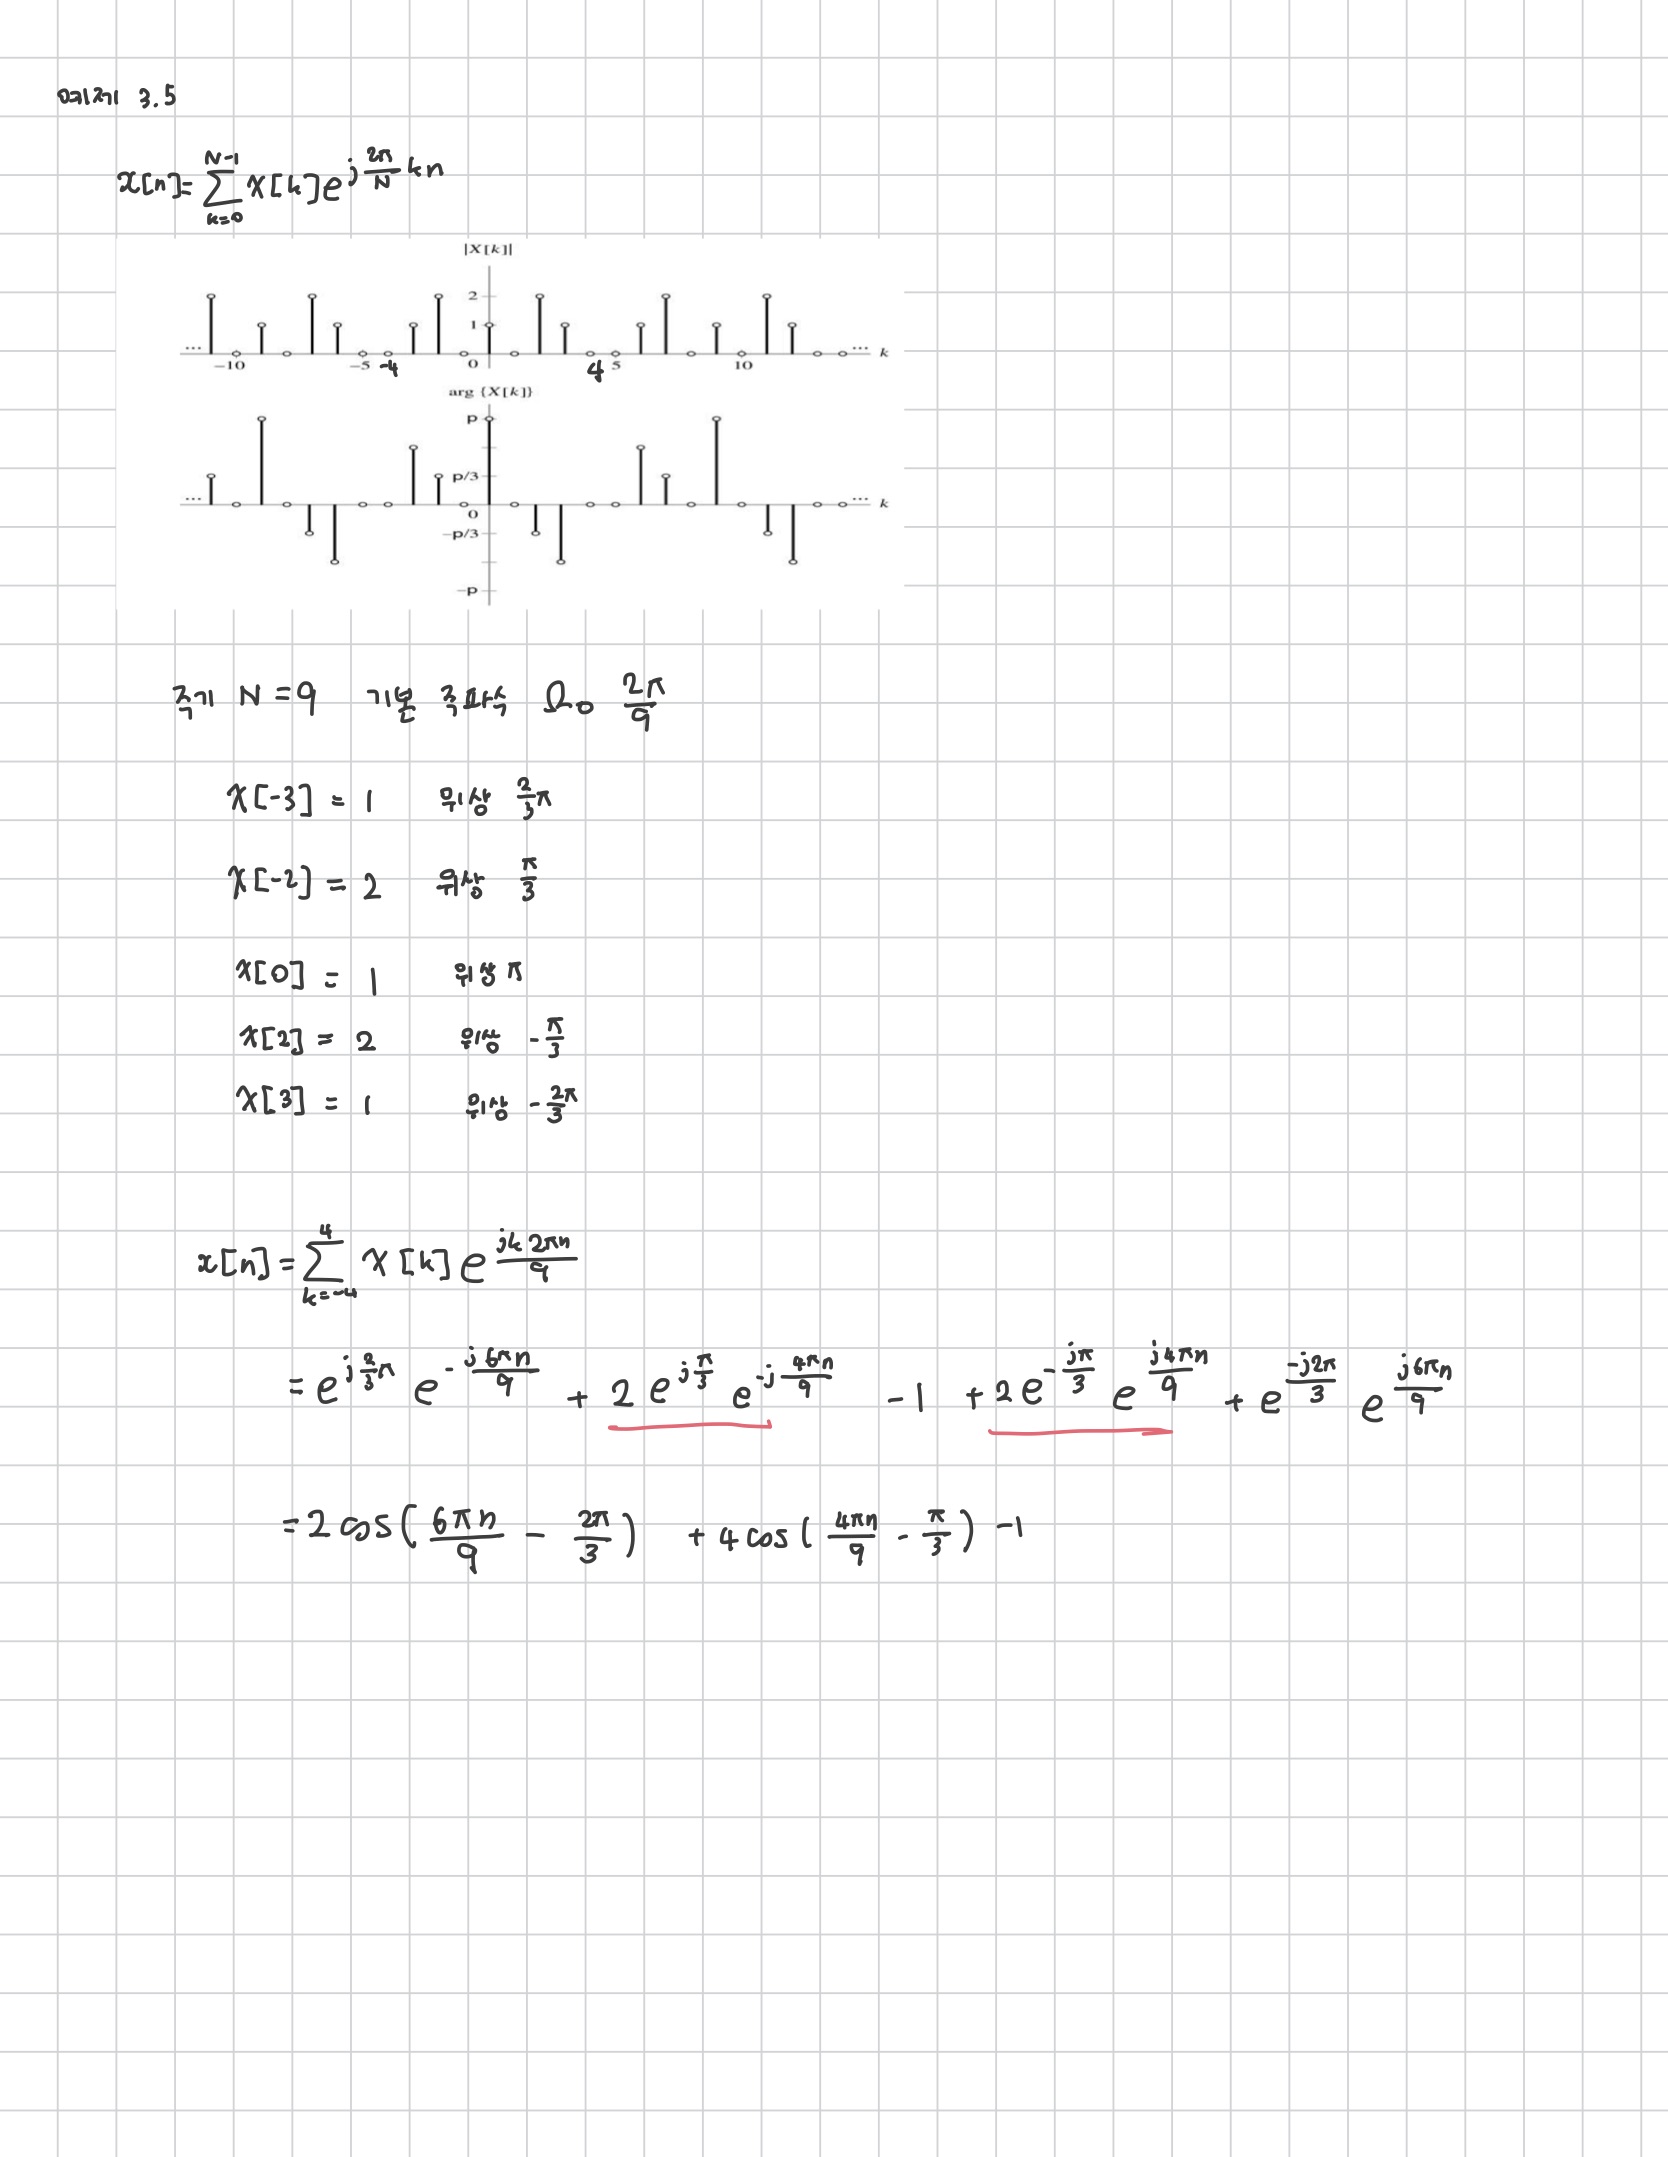 예제 3.5
x[n] = \sum_{k=0}^{N-1} X[k] e^{j\frac{2π}{N}kn}
|X[k]|
2
1
... −10 −5 -4 0 4 5 10 ... k
arg {X[k]}
p
p/3
... 0 ... k
−p/3
−p
주기 N = 9 기본 주파수 Ω₀ \frac{2π}{9}
X[-3] = 1 위상 \frac{2}{3}π
X[-2] = 2 위상 \frac{π}{3}
X[0] = 1 위상 π
X[2] = 2 위상 -\frac{π}{3}
X[3] = 1 위상 -\frac{2π}{3}
x[n] = \sum_{k=-4}^{4} X[k] e^{\frac{jk2πn}{9}}
= e^{j\frac{2}{3}π} e^{-\frac{j6πn}{9}} + 2 e^{j\frac{π}{3}} e^{-j\frac{4πn}{9}} - 1 + 2 e^{-\frac{jπ}{3}} e^{\frac{j4πn}{9}} + e^{\frac{-j2π}{3}} e^{\frac{j6πn}{9}}
= 2 cos( \frac{6πn}{9} - \frac{2π}{3} ) + 4 cos( \frac{4πn}{9} - \frac{π}{3} ) - 1